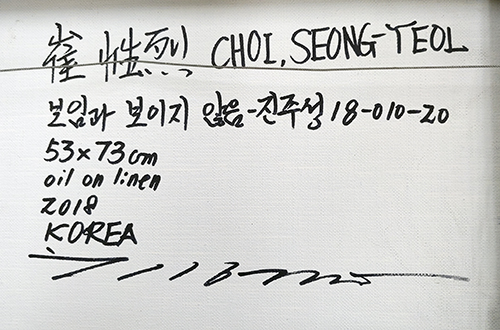 崔 性烈 CHOI, SEONG-YEOL
보임과 보이지 않음-진주성 18-010-20
53x73cm
oil on linen
2018
KOREA